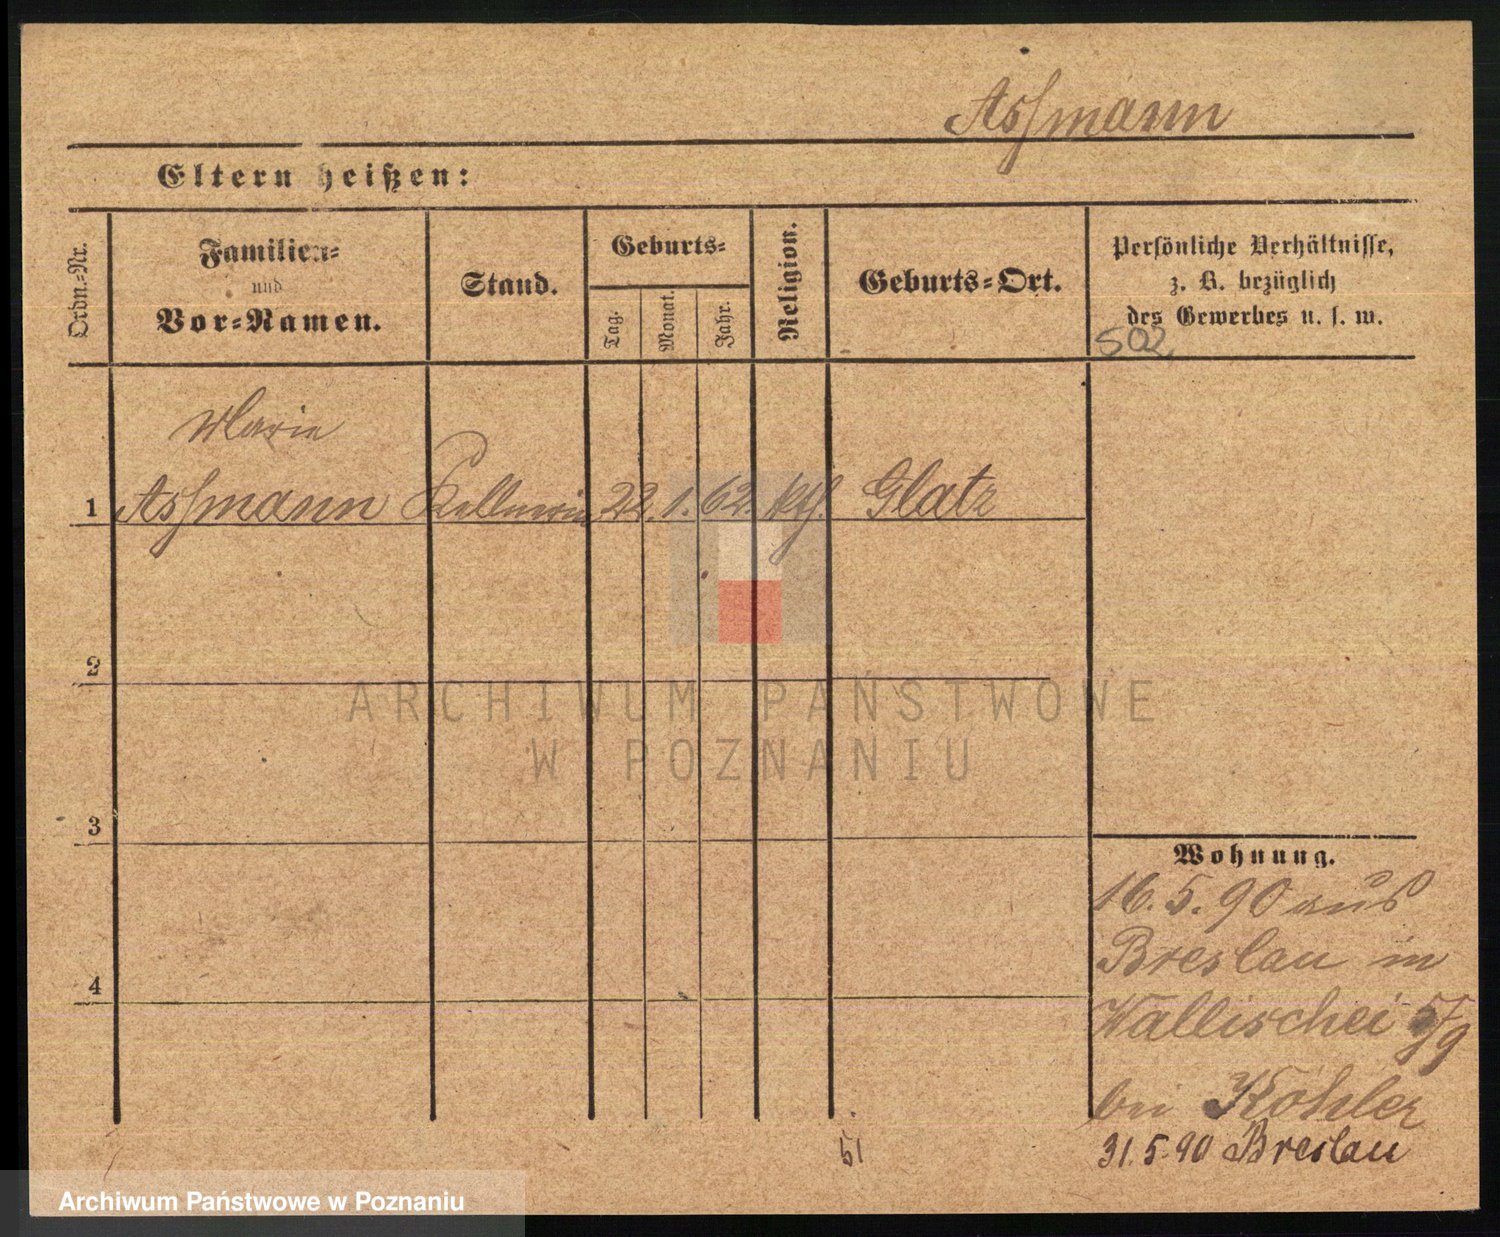 Assmann
Eltern heißen:
Ordn.-Nr.
Familien-
und
Vor-Namen.
Stand.
Geburts-
Tag.
Monat.
Jahr.
Religion.
Geburts-Ort.
Persönliche Verhältnisse,
z. B. bezüglich
des Gewerbes u. s. w.
502
Marie
1 Assmann Kellnerin 22. 1. 62. kth. Glatz
2
3
4
Wohnung.
16. 5. 90 aus
Breslau in
Wallischei 5/9
bei Köhler
31. 5. 90 Breslau
51
ARCHIWUM PAŃSTWOWE
W POZNANIU
Archiwum Państwowe w Poznaniu